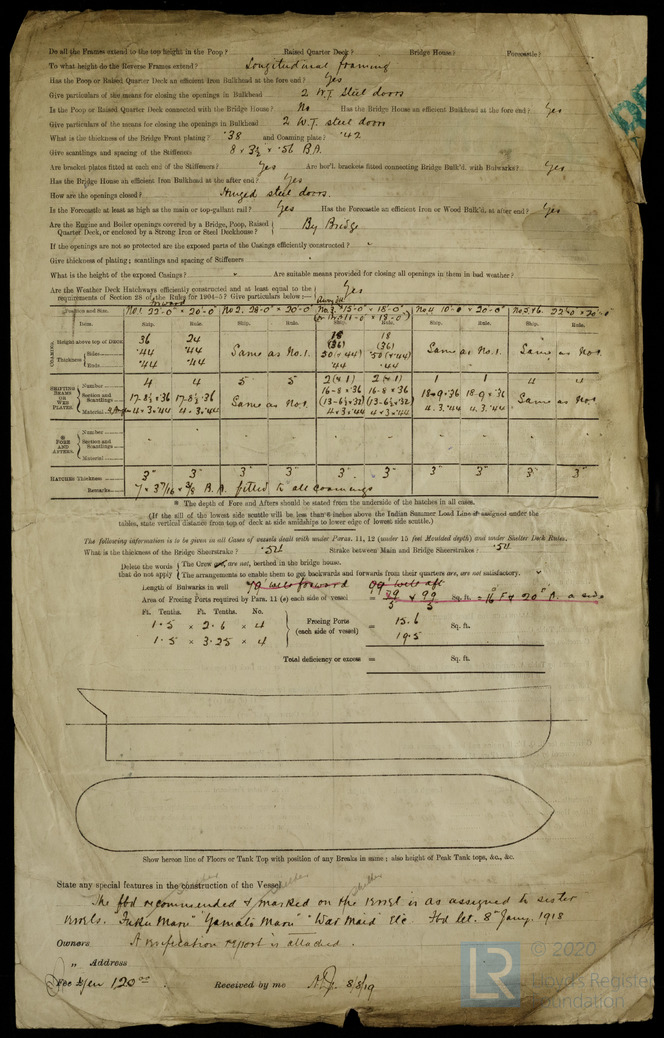 Do all the Frames extend to the top height in the Poop? Raised Quarter Deck? Bridge House? Forecastle?
To what height do the Reverse Frames extend? Longitudinal framing
Has the Poop or Raised Quarter Deck an efficient Iron Bulkhead at the fore end? Yes
Give particulars of the means for closing the openings in Bulkhead 2 W.T. Steel doors
Is the Poop or Raised Quarter Deck connected with the Bridge House? No Has the Bridge House an efficient Bulkhead at the fore end? Yes
Give particulars of the means for closing the openings in Bulkhead 2 W.T. steel doors
What is the thickness of the Bridge Front plating? .38 and Coaming plate? .42
Give scantlings and spacing of the Stiffeners 8 × 3½ × .56 B.A.
Are bracket plates fitted at each end of the Stiffeners? Yes Are hor'l. brackets fitted connecting Bridge Bulk'd. with Bulwarks? Yes
Has the Bridge House an efficient Iron Bulkhead at the after end? Yes
How are the openings closed? Hinged steel doors.
Is the Forecastle at least as high as the main or top-gallant rail? Yes Has the Forecastle an efficient Iron or Wood Bulk'd. at after end? Yes
Are the Engine and Boiler openings covered by a Bridge, Poop, Raised
Quarter Deck, or enclosed by a Strong Iron or Steel Deckhouse? By Bridge
If the openings are not so protected are the exposed parts of the Casings efficiently constructed? "
Give thickness of plating; scantlings and spacing of Stiffeners
What is the height of the exposed Casings? " Are suitable means provided for closing all openings in them in bad weather?
Are the Weather Deck Hatchways efficiently constructed and at least equal to the
requirements of Section 28 of the Rules for 1904-5? Give particulars below:— Yes
Position and Size. Forward No. 1 22'-0" × 20'-0" No 2. 28'-0" × 20'-0" No. 3. 15'-0" × 18'-0" No 4 10'-0" × 20'-0" No 5 & 6. 22'-0" × 20'-0"
Item. Ship. Rule. Ship. Rule. Ship. Rule. Ship. Rule. Ship. Rule.
COAMING. Height above top of DECK 36 24 Same as No. 1. 18 (36) 18 (36) Same as No 1. Same as No 1.
Thickness Sides .44 .44 .50 (.44) .50 (.44)
Ends .44 .44 .44 .44
SHIFTING BEAMS OR WEB PLATES. Number 4 4 5 5 2 (& 1) 2 (& 1) 1 1 4 4
Section and Scantlings 17-8½ × .36 17-8½ .36 Same as No 1 16-8 × .36 16-8 × .36 18×9×.36 18-9 × .36 Same as No 1
(13-6½ × .32) (13-6½ × .32)
Material 4 × 3 × .44 4 × 3 × .44 4 × 3 × .44 4 × 3 × .44 4. 3. .44 4. 3. .44
FORE AND AFTERS. Number
Section and Scantlings
Material
HATCHES Thickness 3" 3" 3" 3" 3" 3" 3" 3" 3" 3"
Remarks 7 × 3 7/16 × 3/8 B.A. fitted to all coamings
* The depth of Fore and Afters should be stated from the underside of the hatches in all cases.
(If the sill of the lowest side scuttle will be less than 6 inches above the Indian Summer Load Line if assigned under the
tables, state vertical distance from top of deck at side amidships to lower edge of lowest side scuttle.)
The following information is to be given in all Cases of vessels dealt with under Paras. 11, 12 (under 15 feet Moulded depth) and under Shelter Deck Rules.
What is the thickness of the Bridge Sheerstrake? .54 Strake between Main and Bridge Sheerstrakes? .54
Delete the words
that do not apply
The Crew are, are not, berthed in the bridge house.
The arrangements to enable them to get backwards and forwards from their quarters are, are not satisfactory.
Length of Bulwarks in well 79' Well forward 99' Well aft
Area of Freeing Ports required by Para. 11 (e) each side of vessel = 79/5 & 99/5 Sq. ft. = 16□ F & 20□ A. a side
Ft. Tenths. Ft. Tenths. No.
1.5 × 2.6 × 4
1.5 × 3.25 × 4
Freeing Ports
(each side of vessel)
= 15.6 Sq. ft.
19.5
Total deficiency or excess = Sq. ft.
Show hereon line of Floors or Tank Top with position of any Breaks in same; also height of Peak Tank tops, &c., &c.
State any special features in the construction of the Vessel
Shelter Shelter Shelter
The fbd recommended & marked on the vessel is as assigned to sister
vessels. "Fuku Maru" "Yamato Maru" "War Maid" Etc. Fbd let. 8th Jany 1918
Owners A verification report is attached.
" Address
Fee Yen 120.00 Received by me 8/8/19
LR © 2020
Lloyd's Register
Foundation